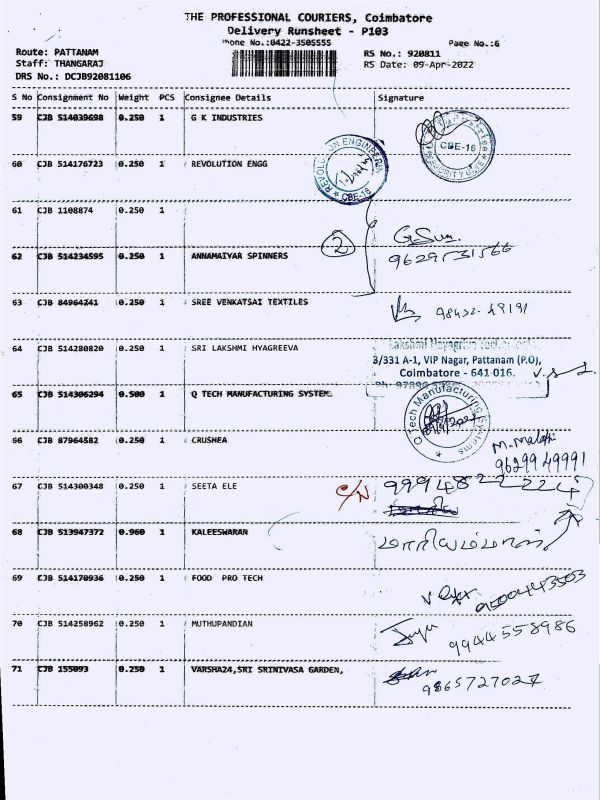 THE PROFESSIONAL COURIERS, Coimbatore
Delivery Runsheet - P103
Phone No.:0422-3505555
Page No.:6
Route: PATTANAM
Staff: THANGARAJ
DRS No.: DCJB92081106
RS No.: 920811
RS Date: 09-Apr-2022
S No Consignment No Weight PCS Consignee Details Signature
59 CJB 514039698 0.250 1 G K INDUSTRIES
CBE-16
SECURITY GATE
60 CJB 514176723 0.250 1 REVOLUTION ENGG
REVOLUTION ENGINEERING
CBE-16
61 CJB 1108874 0.250 1
2
62 CJB 514234595 0.250 1 ANNAMAIYAR SPINNERS
9629531566
63 CJB 84964241 0.250 1 SREE VENKATSAI TEXTILES
98432-49191
64 CJB 514280820 0.250 1 SRI LAKSHMI HYAGREEVA
3/331 A-1, VIP Nagar, Pattanam (P.O),
Coimbatore - 641 016.
65 CJB 514306294 0.500 1 Q TECH MANUFACTURING SYSTEM.
Q Tech Manufacturing Systems
66 CJB 87964582 0.250 1 CRUSHEA
96299 49991
67 CJB 514300348 0.250 1 SEETA ELE
C/N
68 CJB 513947372 0.960 1 KALEESWARAN
69 CJB 514170936 0.250 1 FOOD PRO TECH
9500443503
70 CJB 514258962 0.250 1 MUTHUPANDIAN
9944558986
71 CJB 155093 0.250 1 VARSHA24,SRI SRINIVASA GARDEN,
9865727027